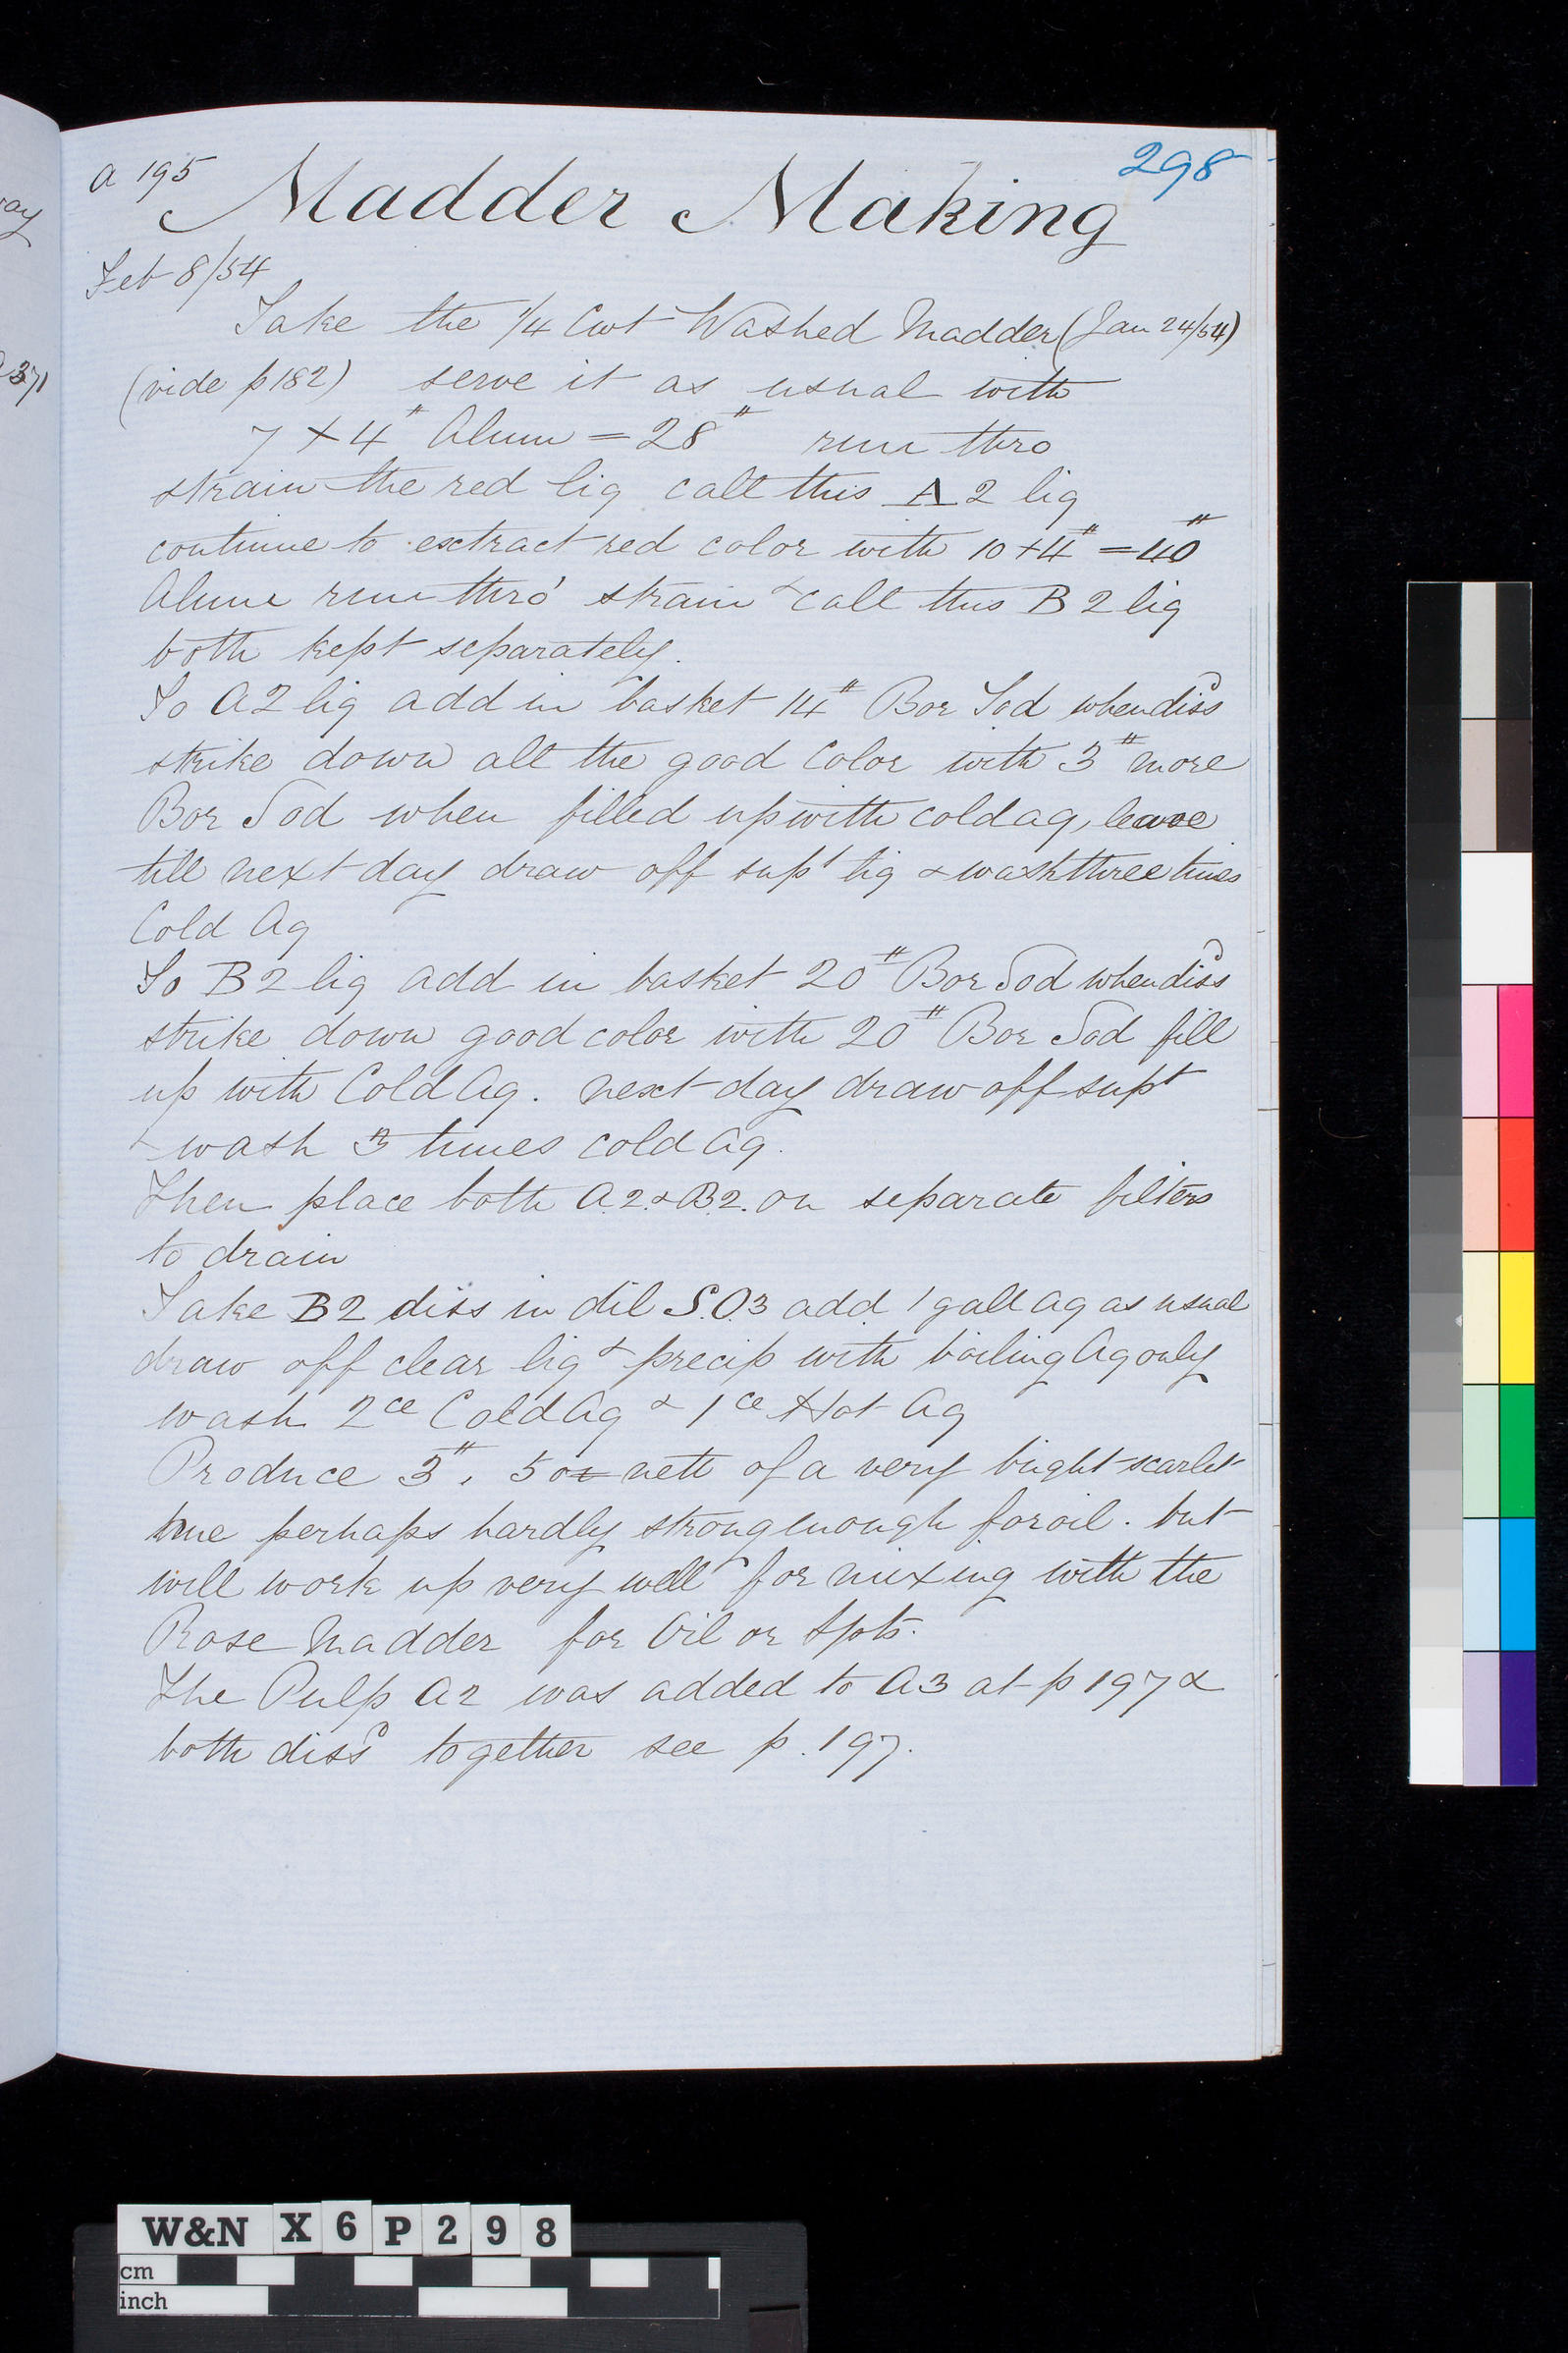 ay
371
a 195
298
Madder Making
Feb 8/54
Take the 1/4 Cwt Washed Madder (Jan 24/54)
(vide p 182) serve it as usual with
7 × 4# Alum = 28# run thro
strain the red liq call this A 2 liq
continue to extract red color with 10 + 4# = 40#
Alum run thro' strain & call this B 2 liq
both kept separately.
To A2 liq add in basket 14# Bor Sod when dissd
strike down all the good Color with 3# more
Bor Sod when filled up with cold aq, leave
till next day draw off supt liq & wash three times
Cold Aq
To B2 liq add in basket 20# Bor Sod when dissd
strike down good color with 20# Bor Sod fill
up with Cold Aq. next day draw off supt
& wash 3 times cold aq.
Then place both A.2. & B.2. on separate filters
to drain
Take B2 diss in dil S.O.3 add 1 gall aq as usual
draw off clear liq & precip with boiling Aq only
wash 2ce Cold Aq & 1ce Hot Aq
Produce 3#. 5 oz nett of a very bright scarlet
hue perhaps hardly strong enough for oil. but
will work up very well for mixing with the
Rose Madder for Oil or Spts.
The Pulp A2 was added to A3 at p 197 &
both dissd together see p. 197.
W&N X6P298
cm
inch